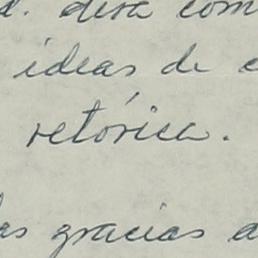 d. dirá com
ideas de e
retórica.
las gracias a